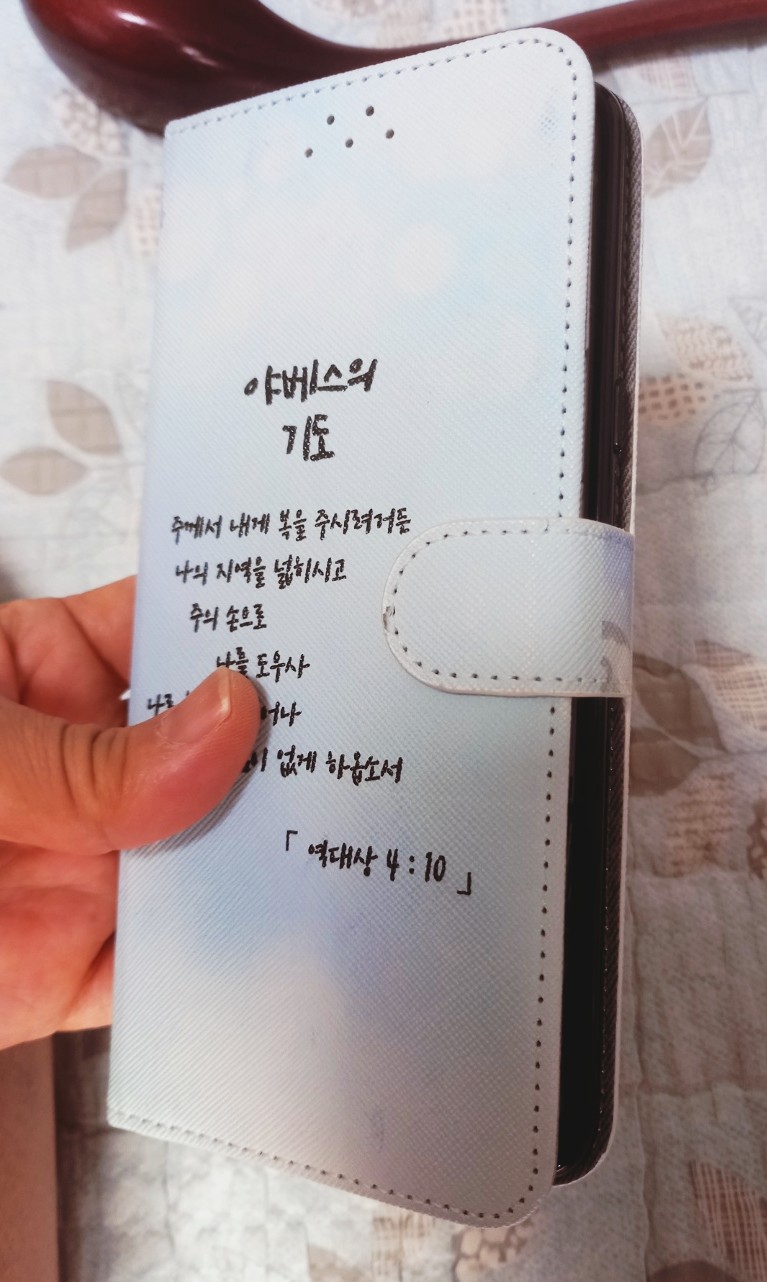 야베스의
기도
주께서 내게 복을 주시려거든
나의 지역을 넓히시고
주의 손으로
나를 도우사
나로
없게 하옵소서
「 역대상 4 : 10 」